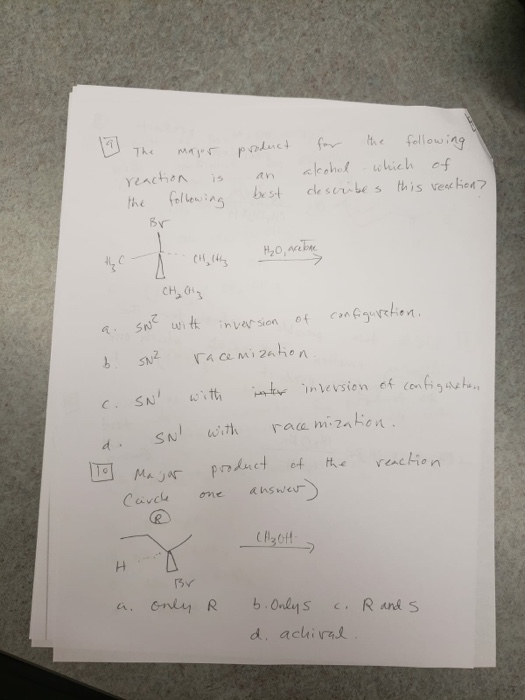 9 The major product for the following
reaction is an alcohol which of
the following best describes this reaction?
Br
H3C
CH2CH3
H2O, acetone
CH2CH3
a. SN2 with inversion of configuration.
b SN2 racemization.
c. SN1 with inversion of configuration
d. SN1 with racemization.
10 Major product of the reaction
(circle one answer)
R
CH3OH
H
Br
a. only R b. Only S c. R and S
d. achiral.